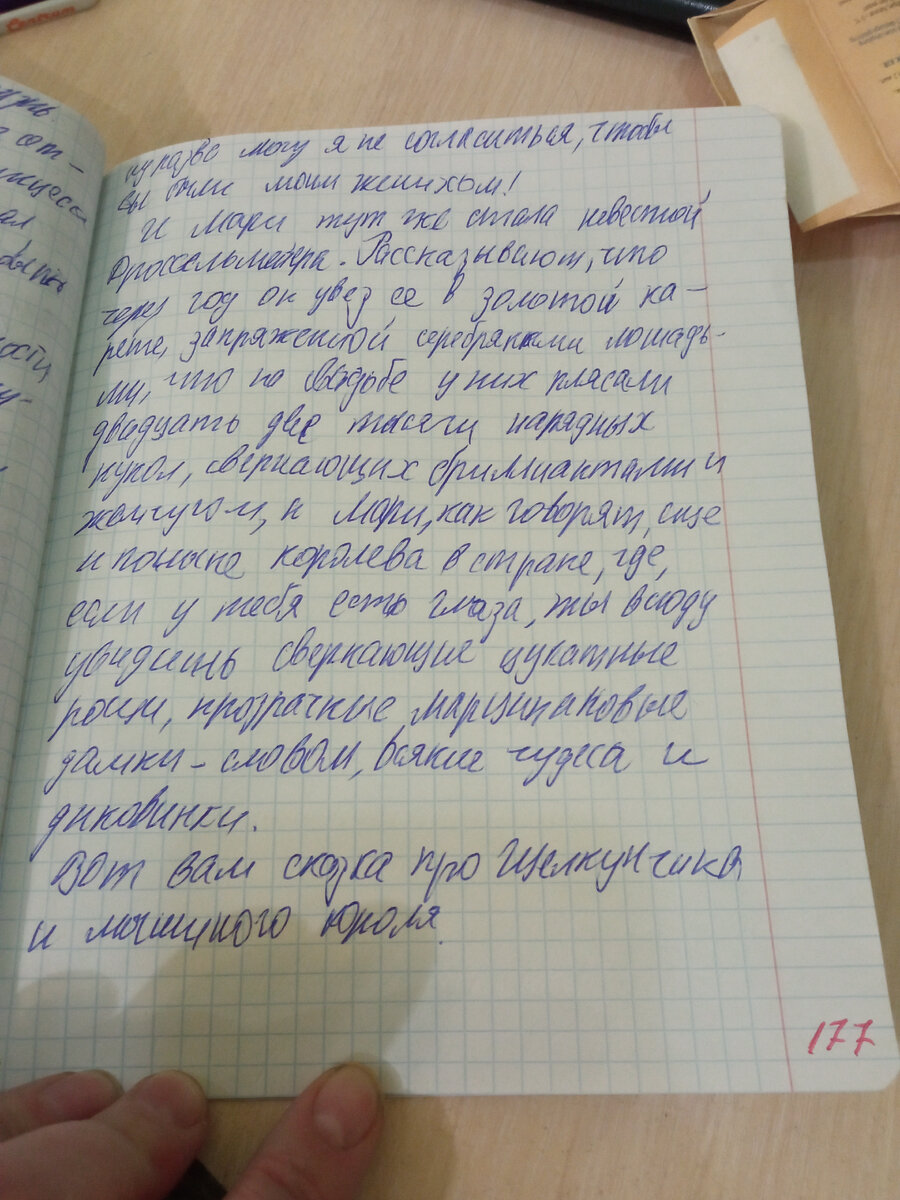 ну разве могу я не согласиться, чтобы
вы были моим женихом!
И Мари тут же стала невестой
Дроссельмейера. Рассказывают, что
через год он увез ее в золотой ка-
рете, запряженной серебряными лошадь-
ми, что на свадьбе у них плясали
двадцать две тысячи нарядных
кукол, сверкающих бриллиантами и
жемчугом, а Мари, как говорят, еще
и поныне королева в стране, где,
если у тебя есть глаза, ты всюду
увидишь сверкающие цукатные
рощи, прозрачные марципановые
замки – словом, всякие чудеса и
диковинки.
Вот вам сказка про Щелкунчика
и мышиного короля.
177